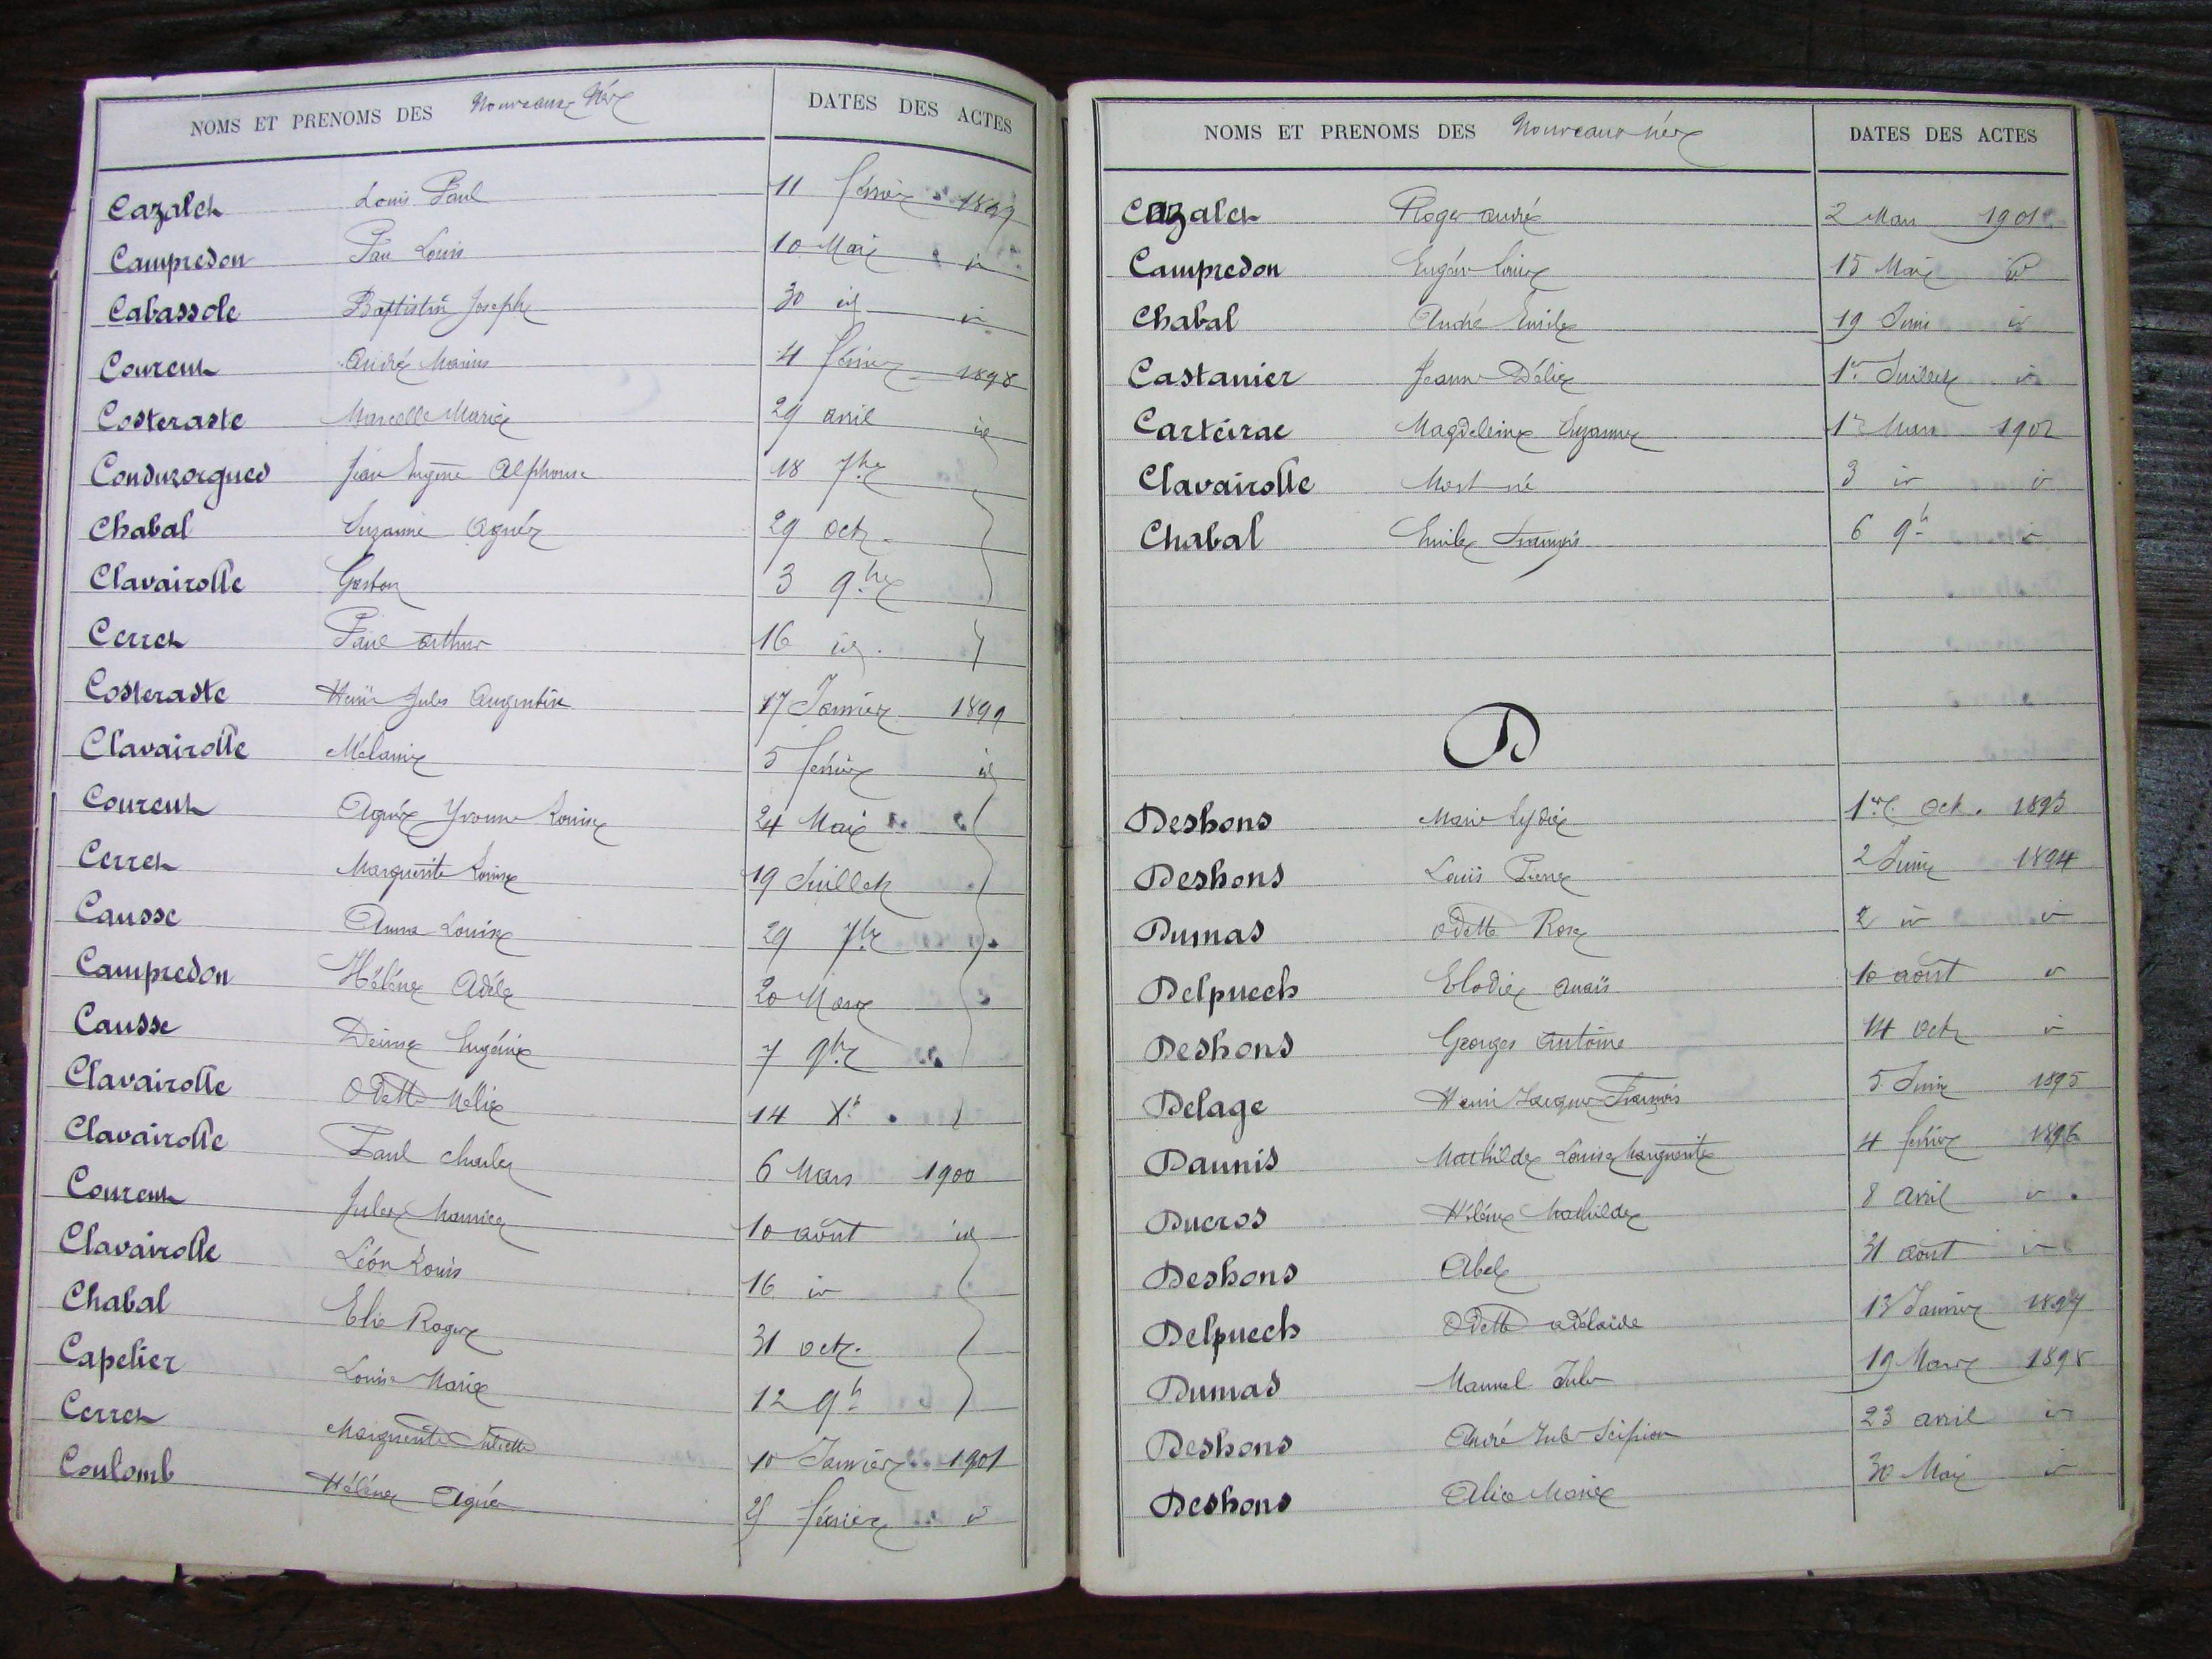 NOMS ET PRENOMS DES Nouveaux Nés DATES DES ACTES
Cazalet Louis Paul 11 février 1897
Campredon Louis 10 Mai id
Cabassole Baptistin Joseph 30 id id
Courent André Marius 4 février 1898
Costeraste Marcelle Marie 29 avril id
Conduzorgues Jean Eugène Alphonse 18 7bre
Chabal Suzanne Agnés 29 oct.
Clavairolle Gaston 3 9bre
Cerret Paul arthur 16 id.
Costeraste Henri Jules Augustin 17 Janvier 1899
Clavairolle Mélanie 5 février id
Courent Agnés Yvonne Louise 24 Mai
Cerret Marguerite Louise 19 Juillet
Causse Anna Louise 29 7bre
Campredon Hélène Adèle 20 Mars
Causse Denise Eugénie 7 9bre
Clavairolle Odette Nélie 14 Xb
Clavairolle Paul Charles 6 Mars 1900
Courent Jules Maurice 10 août id
Clavairolle Léon Louis 16 id
Chabal Elie Roger 31 oct.
Capelier Louise Marie 12 9b
Cerret Marguerite Juliette 10 Janvier 1901
Coulomb Hélène Agnés février id
NOMS ET PRENOMS DES Nouveaux nés DATES DES ACTES
Cazalet Roger andré 2 Mars 1901
Campredon Eugène Louis 15 Mai id
Chabal André Emile 19 Juin id
Castanier Jeanne Délie 1er Juillet id
Cartéirac Magdeleine Suzanne 1er Mars 1902
Clavairolle Mort né 3 id id
Chabal Emile François 6 9b id
D
Deshons Marie Lydie 1er Oct. 1893
Deshons Louis Pierre 2 Juin 1894
Dumas Odette Rose 2 id id
Delpuech Elodie Anaïs 10 août id
Deshons Georges Antoine 14 Oct id
Delage Henri Jacques François 5 Juin 1895
Daunis Mathilde Louise Marguerite 4 février 1896
Ducros Hélène Mathilde 8 avril id
Deshons Abel 31 août id
Delpuech Odette adélaïde 13 Janvier 1897
Dumas Manuel Jules 19 Mars 1898
Deshons André Jules Scipion 23 avril id
Deshons Alice Marie 30 Mai id